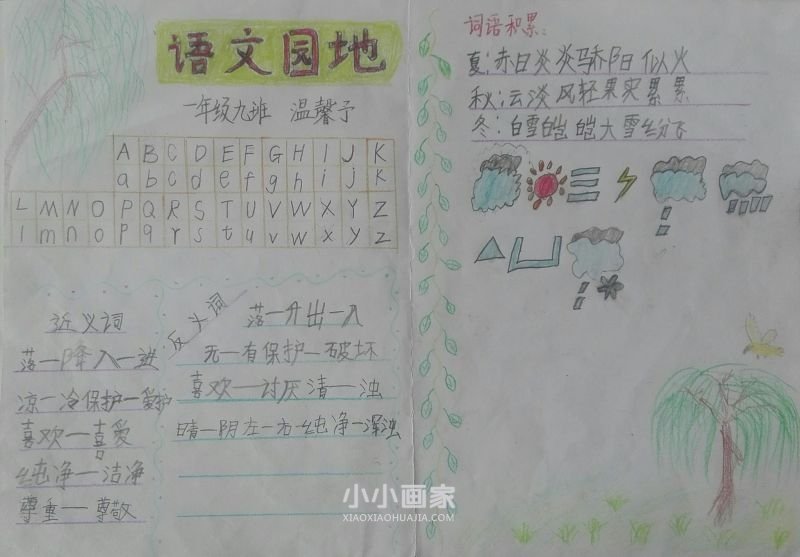 语文园地
一年级九班 温馨予
A B C D E F G H I J K
a b c d e f g h i j k
L M N O P Q R S T U V W X Y Z
l m n o p q r s t u v w x y z
近义词
落—降 入—进
凉—冷 保护—爱护
喜欢—喜爱
纯净—洁净
尊重—尊敬
反义词
落—升 出—入
无—有 保护—破坏
喜欢—讨厌 清—浊
晴—阴 左—右 纯净—浑浊
词语积累:
夏:赤日炎炎 骄阳似火
秋:云淡风轻 果实累累
冬:白雪皑皑 大雪纷飞
小小画家
XIAOXIAOHUAJIA.COM